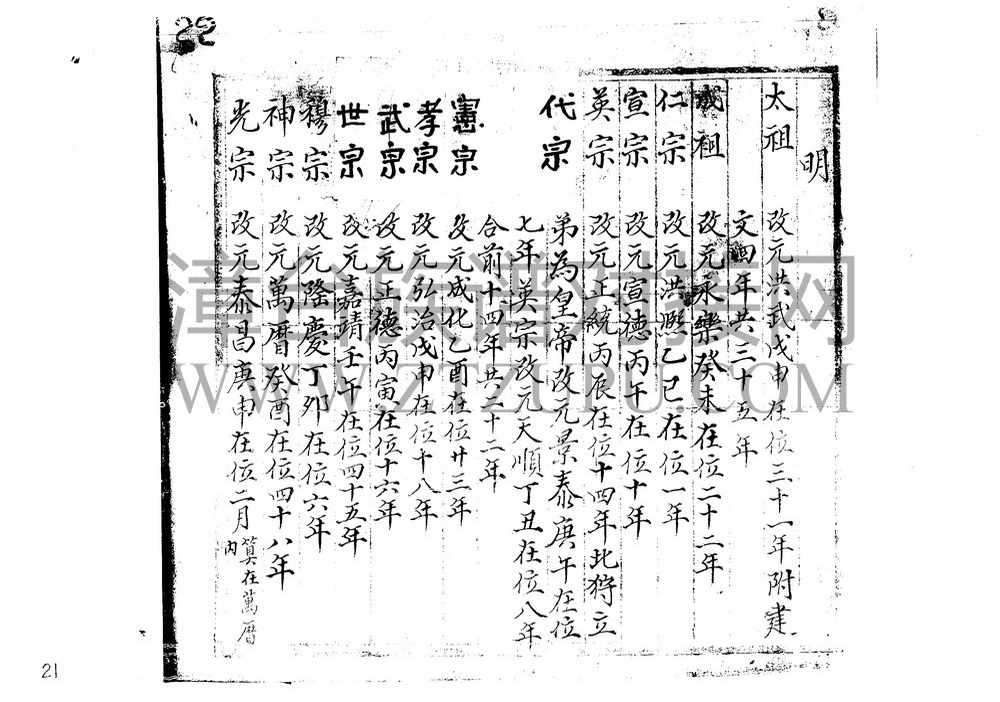 22
明
太祖 改元洪武戊申在位三十一年附建
文四年共三十五年
成祖 改元永樂癸未在位二十二年
仁宗 改元洪熙乙巳在位一年
宣宗 改元宣德丙午在位十年
英宗 改元正統丙辰在位十四年北狩立
代宗 弟為皇帝改元景泰庚午在位
七年英宗改元天順丁丑在位八年
合前十四年共二十二年
憲宗 改元成化乙酉在位廿三年
孝宗 改元弘治戊申在位十八年
武宗 改元正德丙寅在位十六年
世宗 改元嘉靖壬午在位四十五年
穆宗 改元隆慶丁卯在位六年
神宗 改元萬曆癸酉在位四十八年
光宗 改元泰昌庚申在位二月 算在萬曆
內
漳台族谱对接网
WWW.ZTZUPU.COM
21